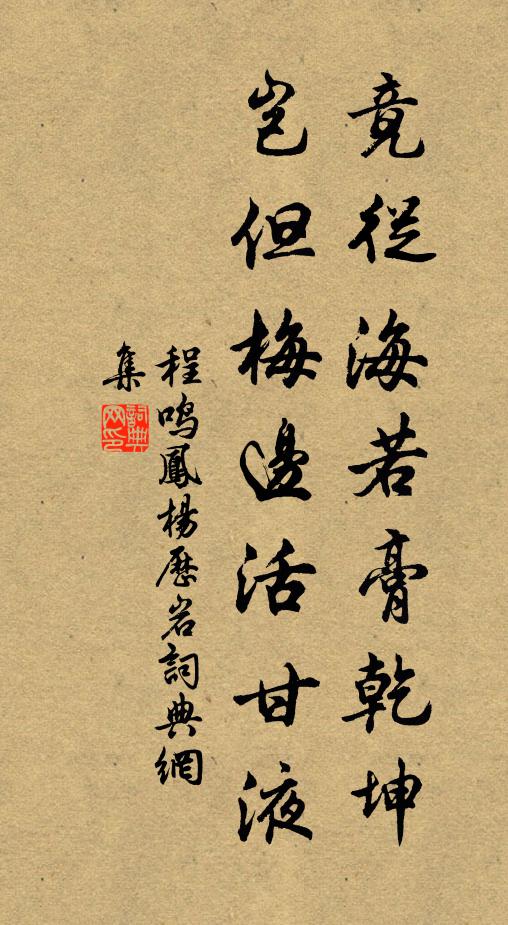 竟從海若膏乾坤
豈但梅邊活甘液
程鳴鳳楊歷岩詞典網
集
詞典网印